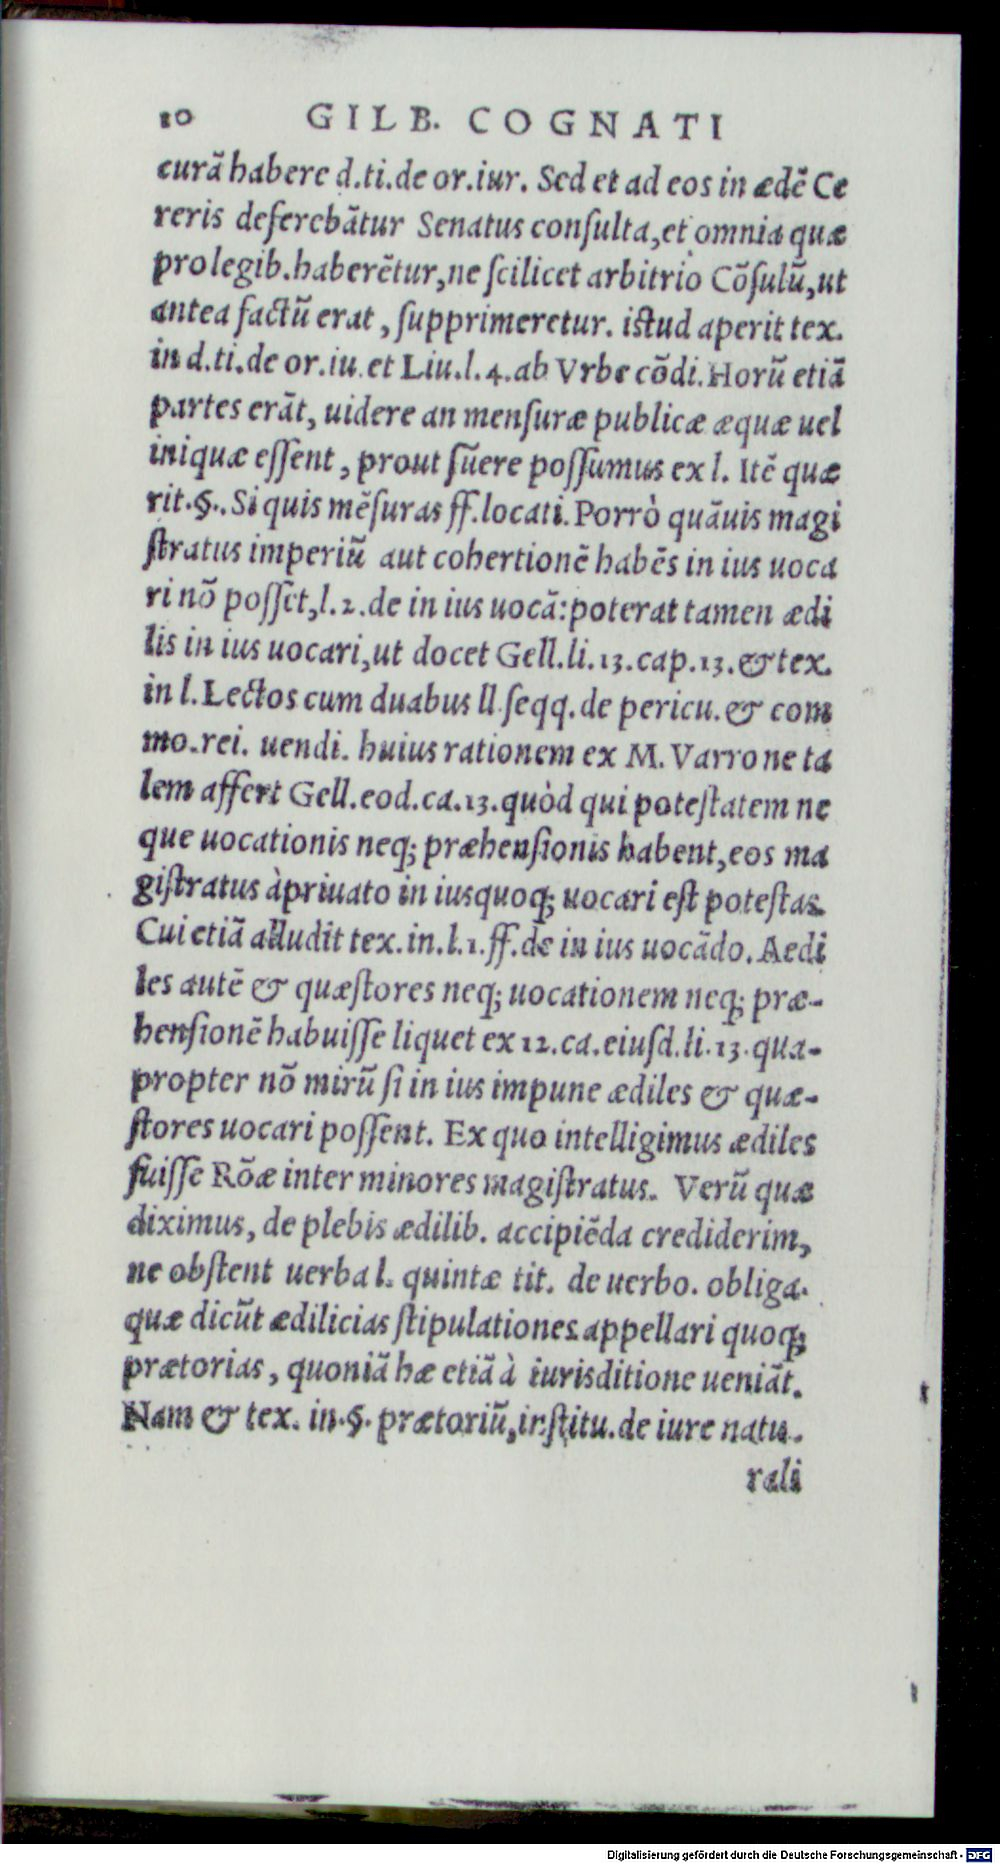 10 GILB. COGNATI
curã habere d.ti.de or.iur. Sed et ad eos in ædẽ Ce
reris deferebãtur Senatus conſulta,et omnia quæ
pro legib.haberẽtur,ne ſcilicet arbitrio Cõſulũ,ut
antea factũ erat, ſupprimeretur. iſtud aperit tex.
in d.ti.de or.iu.et Liu.l.4.ab Vrbe cõdi.Horũ etiã
partes erãt, uidere an menſuræ publicæ æquæ uel
iniquæ eſſent, prout ſũere poſſumus ex l. Itẽ quæ
rit.§.. Si quis mẽſuras ff.locati.Porrò quãuis magi
ſtratus imperiũ aut cohertionẽ habẽs in ius uoca
ri nõ poſſet,l.2.de in ius uocã:poterat tamen ædi
lis in ius uocari,ut docet Gell.li.13.cap.13.& tex.
in l.Lectos cum duabus ll.ſeqq.de pericu.& com
mo.rei. uendi. huius rationem ex M.Varrone ta
lem affert Gell.eod.ca.13.quòd qui poteſtatem ne
que uocationis neq; præhenſionis habent,eos ma
giſtratus à priuato in ius quoq; uocari eſt poteſtas.
Cui etiã alludit tex.in.l.1.ff.de in ius uocãdo.Aedi
les autẽ & quæſtores neq; uocationem neq; præ-
henſionẽ habuiſſe liquet ex 12.ca.eiuſd.li.13.qua-
propter nõ mirũ ſi in ius impune ædiles & quæ-
ſtores uocari poſſent. Ex quo intelligimus ædiles
fuiſſe Rõæ inter minores magiſtratus. Verũ quæ
diximus, de plebis ædilib. accipiẽda crediderim,
ne obſtent uerba l. quintæ tit. de uerbo. obliga.
quæ dicũt ædilicias ſtipulationes appellari quoq;
prætorias, quoniã hæ etiã à iurisditione ueniãt.
Nam & tex. in.§. prætoriũ,inſtitu.de iure natu.
rali
Digitalisierung gefördert durch die Deutsche Forschungsgemeinschaft - DFG